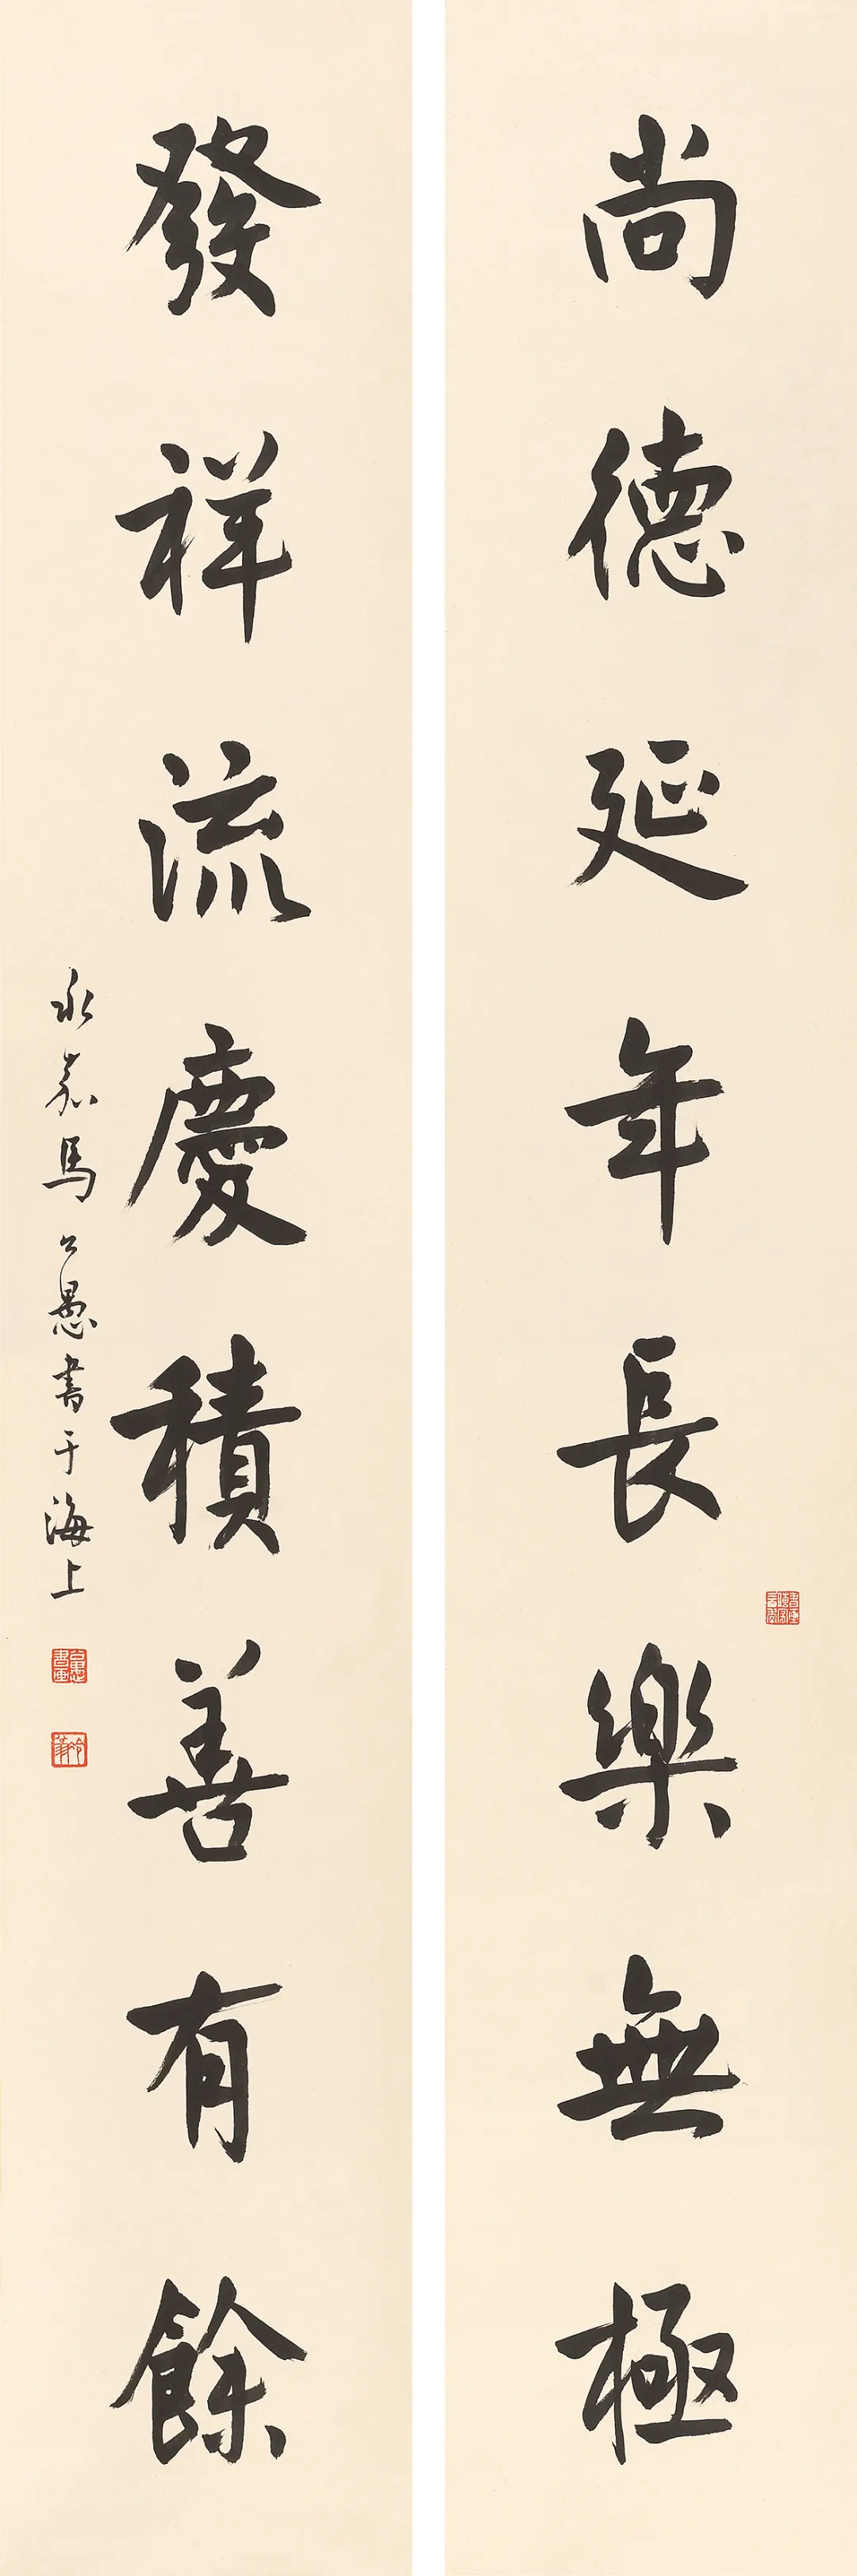 尚德延年長樂無極
發祥流慶積善有餘
永嘉馬公愚書于海上
公愚書畫